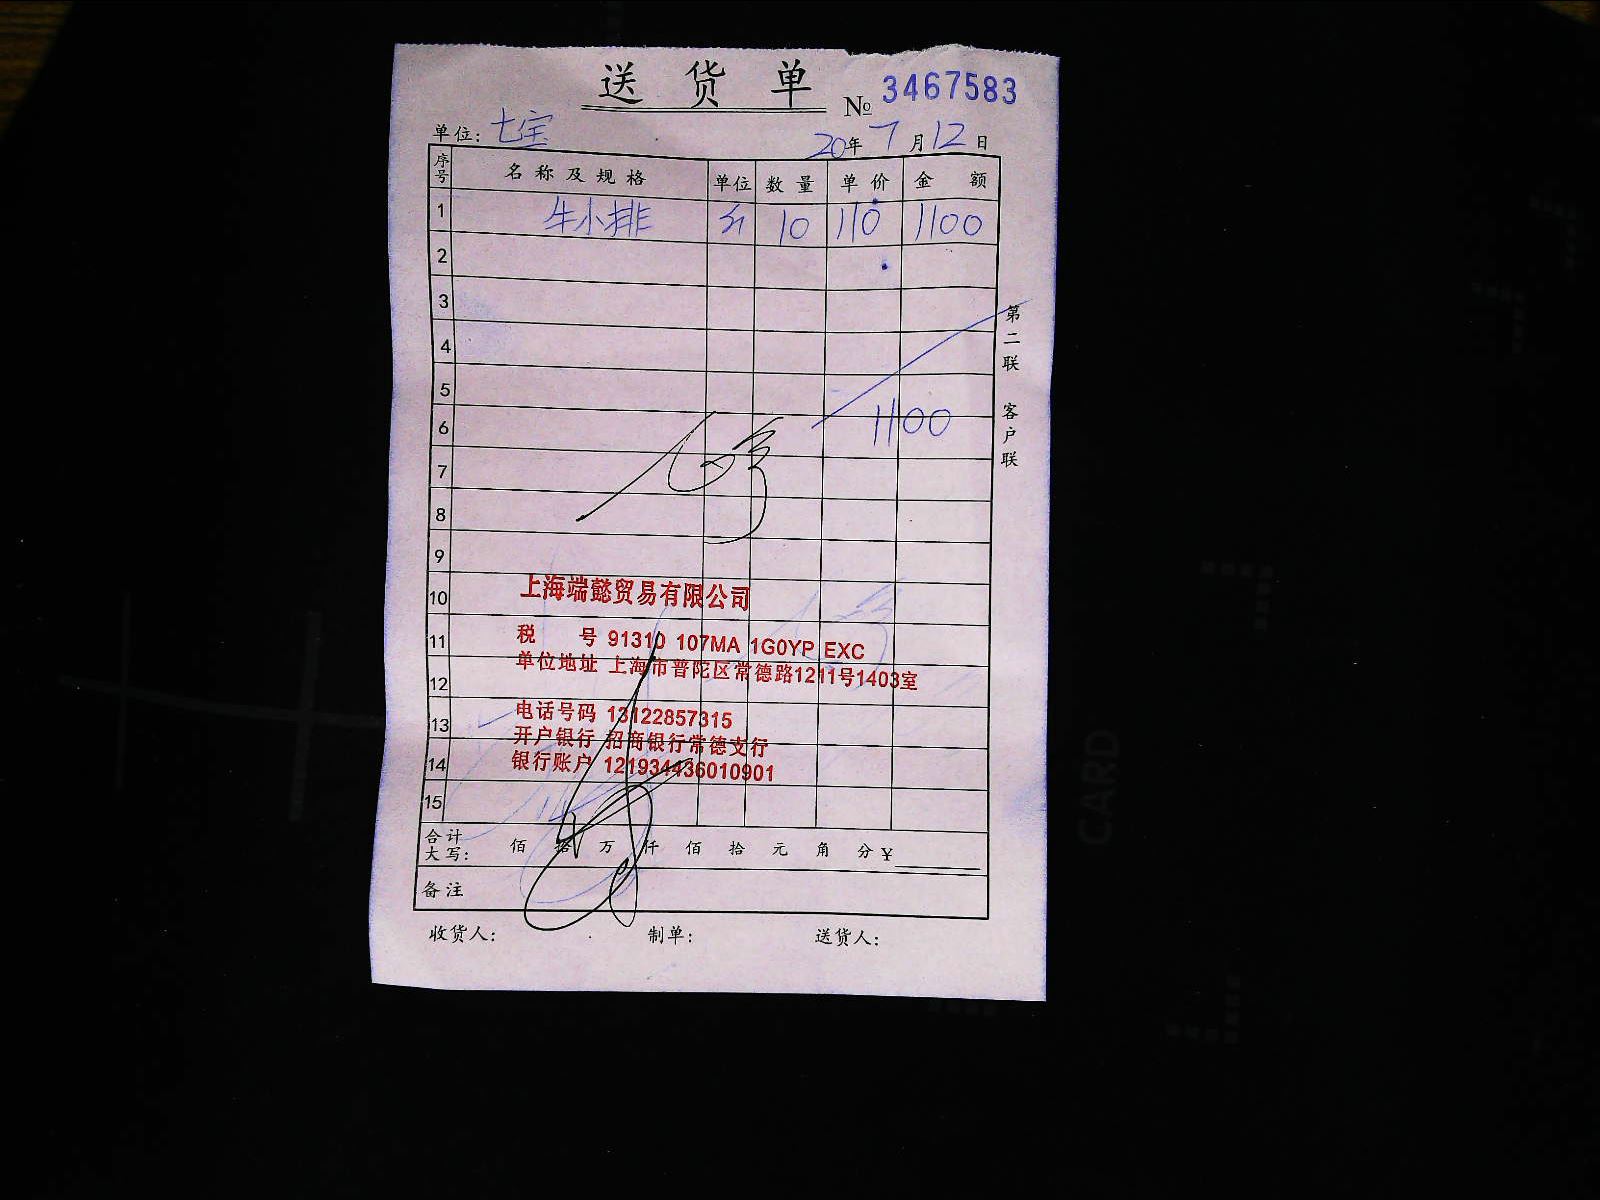 送货单
№ 3467583
单位: 七宝 20年7月12日
序号 名称及规格 单位 数量 单价 金额
1 牛小排 斤 10 110 1100
2
3
4
5
6 1100
7
8
9
10 上海端懿贸易有限公司
11 税 号 91310 107MA 1G0YP EXC
单位地址 上海市普陀区常德路1211号1403室
12
13 电话号码 13122857315
开户银行 招商银行常德支行
14 银行账户 121934436010901
15
合计大写: 佰 拾 万 仟 佰 拾 元 角 分 ¥
备注
收货人: 制单: 送货人:
第二联 客户联
CARD